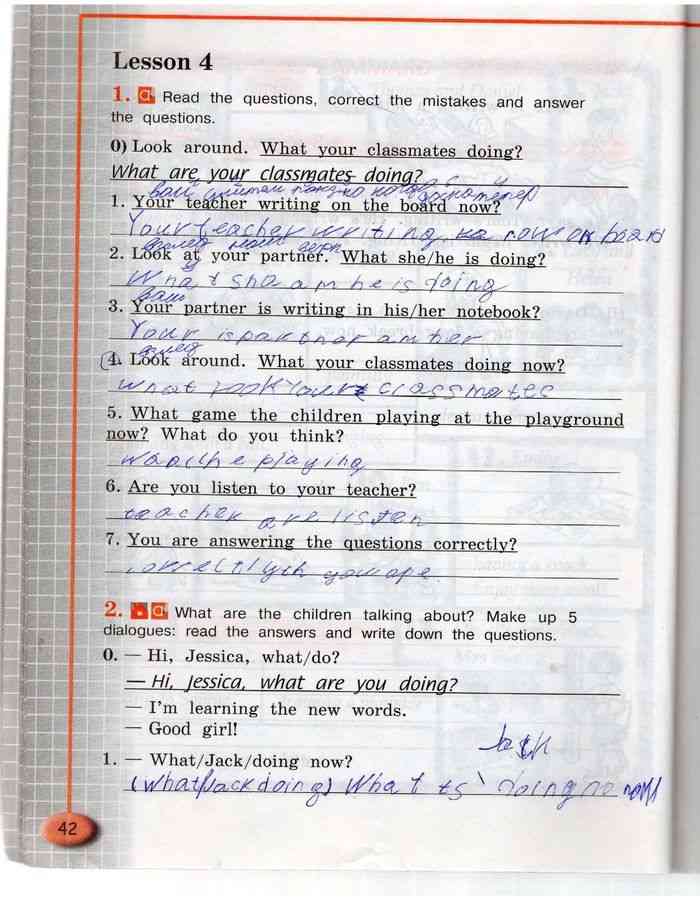 Lesson 4
1. Read the questions, correct the mistakes and answer
the questions.
0) Look around. What your classmates doing?
What are your classmates doing?
1. Your teacher writing on the board now?
Your teacher writing на now on board
2. Look at your partner. What she/he is doing?
What sha am he is doing
ваш
3. Your partner is writing in his/her notebook?
Your is
4. Look around. What your classmates doing now?
What look your classmates
5. What game the children playing at the playground
now? What do you think?
playing
6. Are you listen to your teacher?
teacher are listen
7. You are answering the questions correctly?
2. What are the children talking about? Make up 5
dialogues: read the answers and write down the questions.
0. — Hi, Jessica, what/do?
— Hi, Jessica, what are you doing?
— I'm learning the new words.
— Good girl!
1. — What/Jack/doing now?
(What/Jack doing) What is doing
42